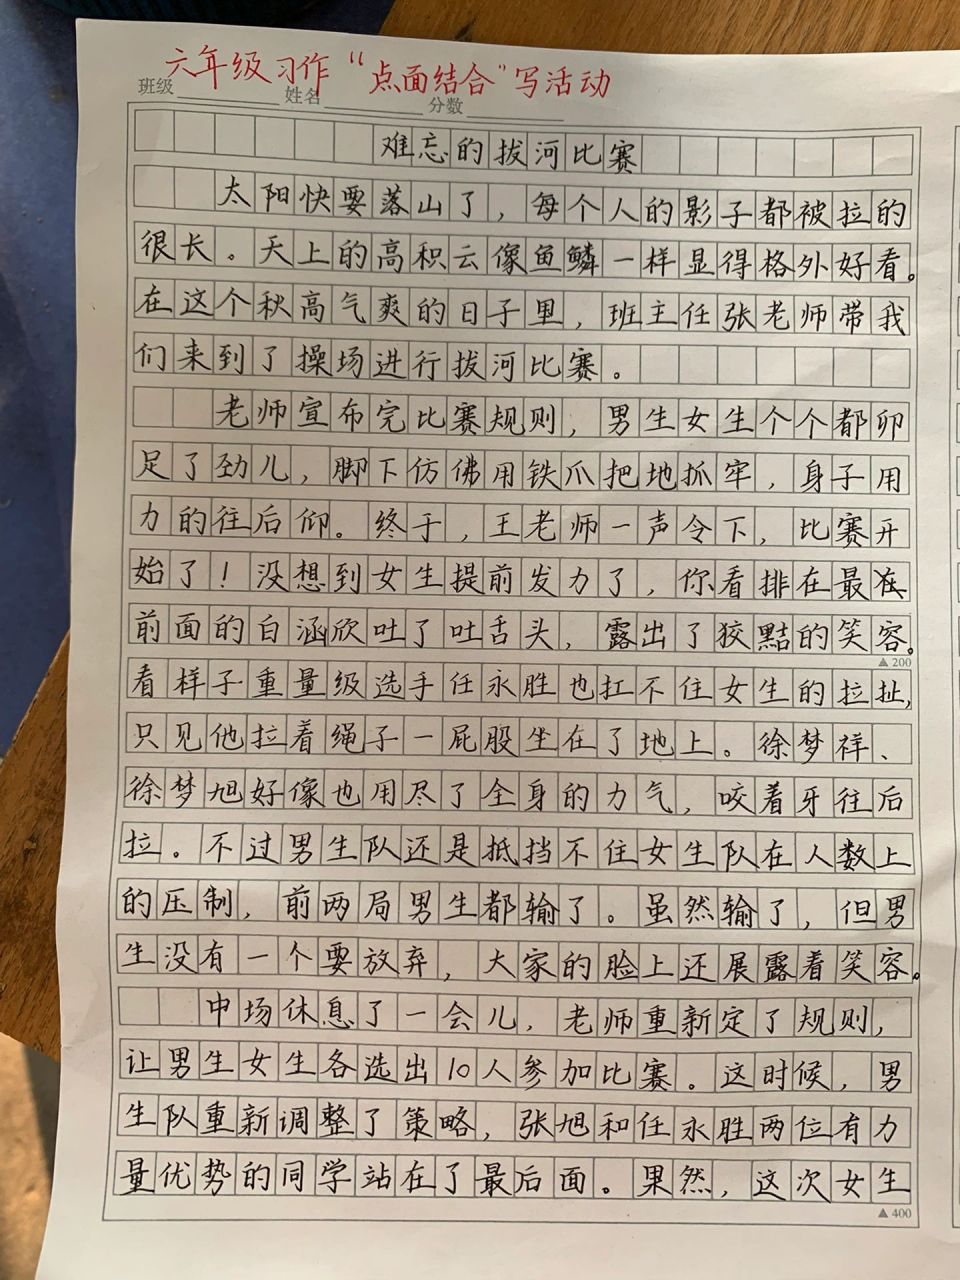 六年级习作“点面结合”写活动
班级 姓名 分数
难忘的拔河比赛
太阳快要落山了，每个人的影子都被拉的
很长。天上的高积云像鱼鳞一样显得格外好看。
在这个秋高气爽的日子里，班主任张老师带我
们来到了操场进行拔河比赛。
老师宣布完比赛规则，男生女生个个都卯
足了劲儿，脚下仿佛用铁爪把地抓牢，身子用
力的往后仰。终于，王老师一声令下，比赛开
始了！没想到女生提前发力了，你看排在最
前面的白涵欣吐了吐舌头，露出了狡黠的笑容。
▲200
看样子重量级选手任永胜也扛不住女生的拉扯，
只见他拉着绳子一屁股坐在了地上。徐梦祥、
徐梦旭好像也用尽了全身的力气，咬着牙往后
拉。不过男生队还是抵挡不住女生队在人数上
的压制，前两局男生都输了。虽然输了，但男
生没有一个要放弃，大家的脸上还展露着笑容。
中场休息了一会儿，老师重新定了规则，
让男生女生各选出10人参加比赛。这时候，男
生队重新调整了策略，张旭和任永胜两位有力
量优势的同学站在了最后面。果然，这次女生
▲400